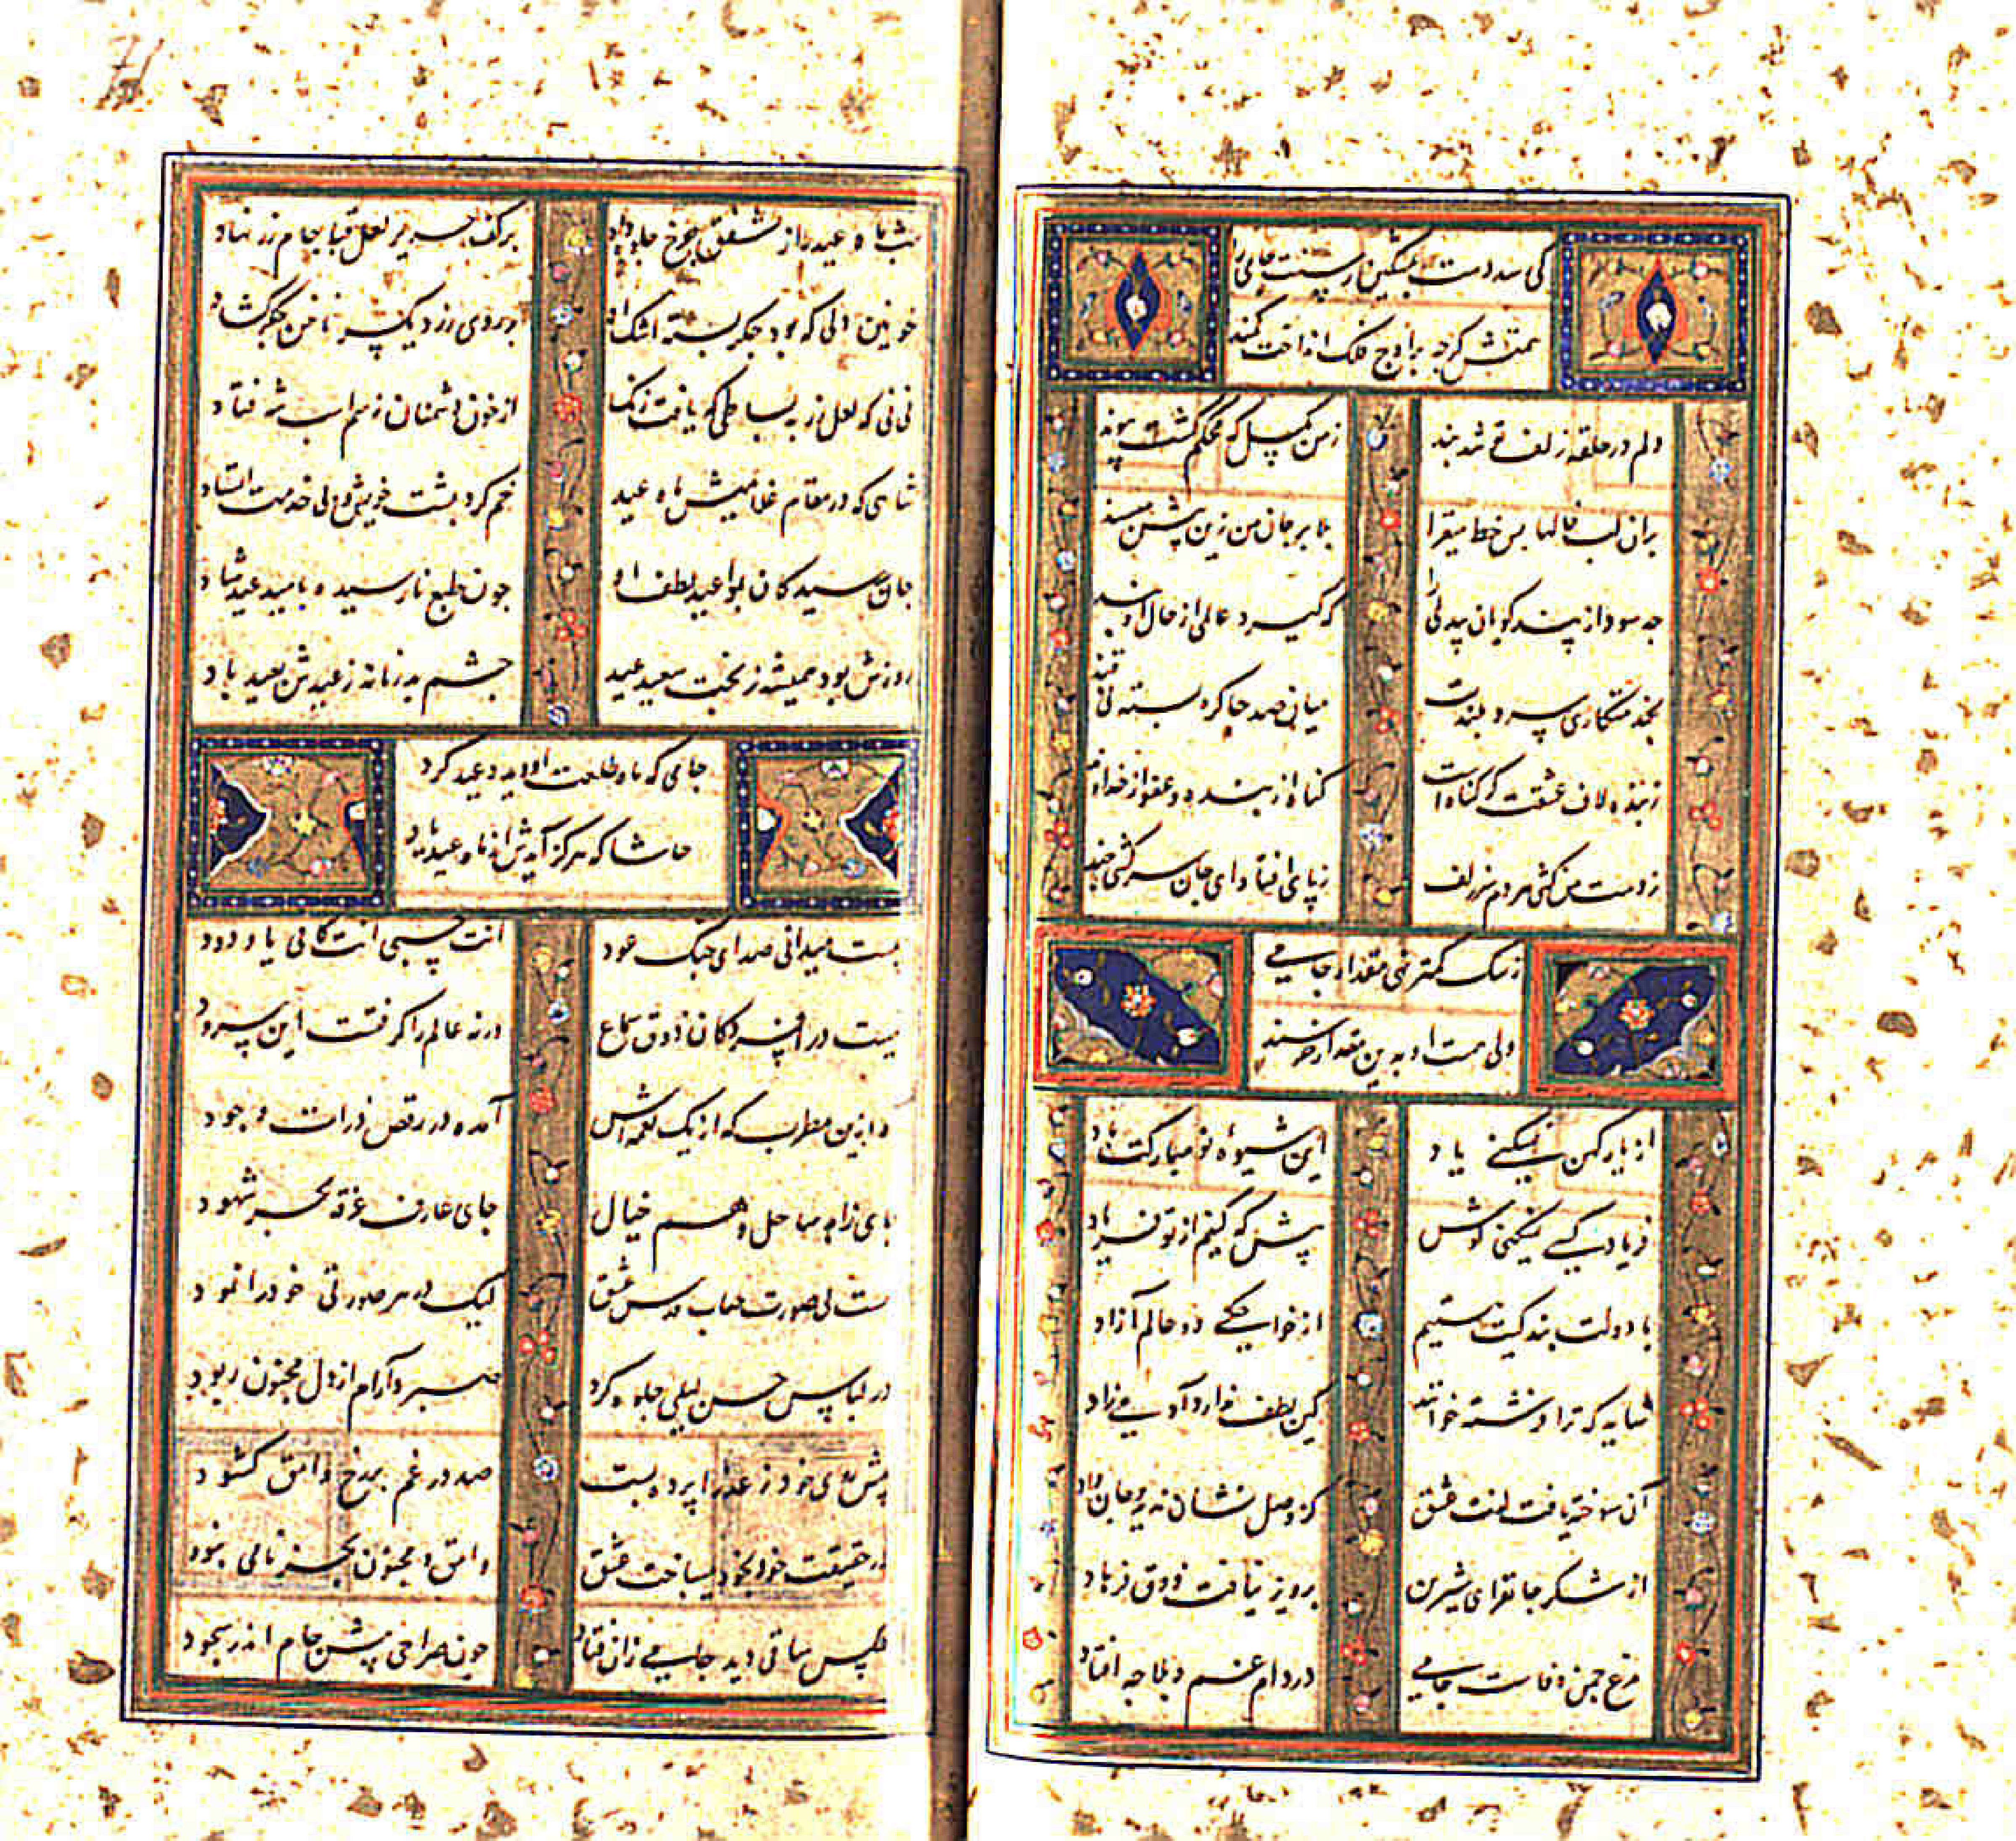 کی سد دست بمسکین رسنت جامی را
همتش کرجه بر اوج فلک انداخت کمند
دلم در حلقه زلف تو شد بند
زمن مکسل که محکم کشت پیوند
بران لب خالها بس خط میفزا
بلا بر جان من زین پیش مپسند
جه سود از پند کویان بیدلی را
که کیرد عالمی از حال او پند
بخدمتکاری سرو بلندت
میان صد جا کره بسته نی قند
زبنده لاف عشقت کر کناه است
کناه از بنده و عفو از خداوند
ز دست من کشی هر دم سر زلف
ز پای افتاده ای جان سرکشی چند
زسک کمتر نهی مقدار جامی
ولی هست او بدین مقدار خرسند
از یار کهن نمیکنی یاد
این شیوه نو مبارکت باد
فریاد کسی نمیکنی کوش
پیش که کنیم از تو فریاد
با دولت بندکیت هستیم
از خواجکی دو عالم آزاد
همسایه که ترا فرشته خوانند
کین لطف ندارد آدمی زاد
آن سوخته یافت لذت عشق
کز وصل نشان ندید و جان داد
از شکر جانفزای شیرین
پرویز نیافت ذوق فرهاد
مرغ جمن وفاست جامی
در دام غم و بلا جه افتاد
شب ماه عید را ز شفق جرخ جلوه داد
بر کف حریر لعل قبا جام زر نهاد
خونین دلی که بود جکر بسته اشک او
بر روی زرد یک سر ناخن جکر کشاد
نی نی که لعل زر به بساطی که یافت رنک
از خون دشمنان زسم اسب شه فتاد
شاهی که در مقام غلامیش ماه عید
خم کرد پشت خویش و لی خدمت ایستاد
جان میرسید کان بمواعید لطف او
جون طبع نارسیده بامید عید شاد
روزش بود همیشه ز بخت سعید عید
جشم بد زمانه ز عیدش بعید باد
جامی که ماه طلعت او دید و عید کرد
حاشا که هرکز آیدش از ماه عید یاد
هست میدانی صدای جنک و عود
انت حسبی انت کافی یا ودود
نیست در افسردکان ذوق سماع
ورنه عالم را کرفتست این سرود
وه ازین مطرب که از یک نغمه اش
آمده در رقص ذرات وجود
جای زاهد ساحل وهم خیال
جای عارف غرقه بحر شهود
هست بی صورت جناب قدس عشق
لیک در هر صورتی خود را نمود
در لباس حسن لیلی جلوه کرد
صبر و آرام از دل مجنون ربود
پیش روی خود ز عذرا پرده بست
صد در غم بر رخ وامق کشود
در حقیقت خود بخود میباخت عشق
وامق و مجنون بجز نامی نبود
عکس ساقی دید جامی زان فتاد
جون صراحی پیش جام اندر سجود